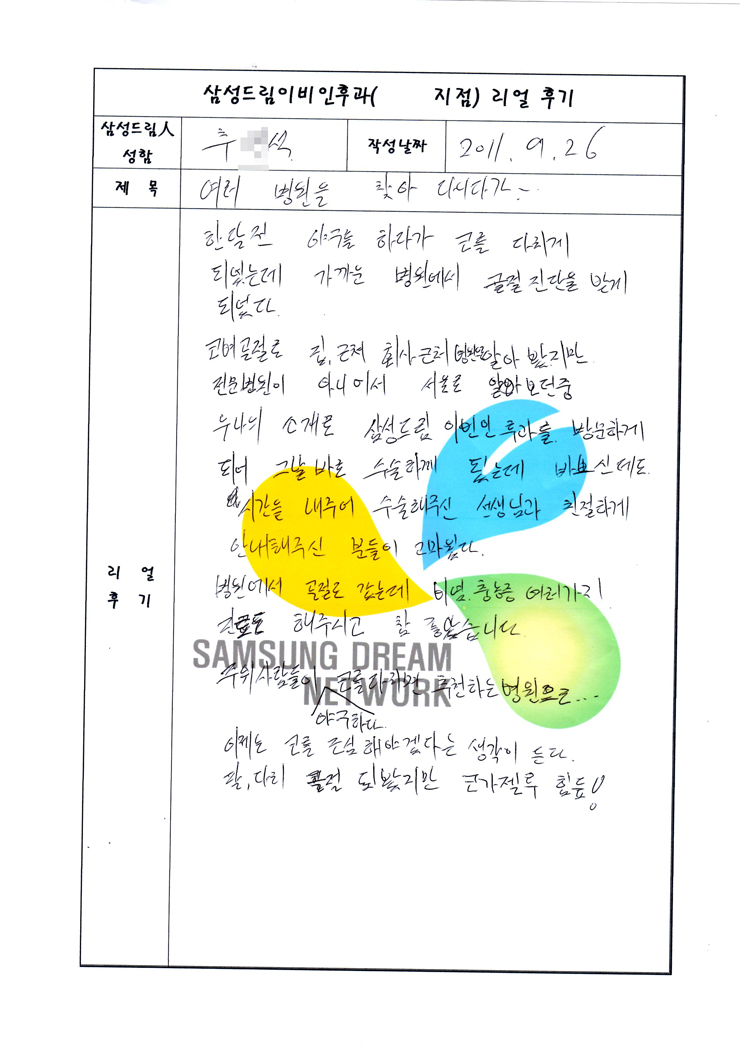 삼성드림이비인후과(          지점) 리얼 후기
삼성드림人 성함
추 석
작성날짜
2011. 9. 26
제 목
여러 병원을 찾아 다니다가~
리 얼 후 기
한달전 야구를 하다가 코를 다치게
되었는데 가까운 병원에서 골절 진단을 받게
되었다.
코뼈골절로 집, 근처 회사근처 병원을 알아 봤지만
전문병원이 아니어서 서울로 알아보던중
누나의 소개로 삼성드림 이비인후과를 방문하게
되어 그날 바로 수술하게 됬는데 바쁘신데도
시간을 내주어 수술해주신 선생님과 친절하게
안내해주신 분들이 고마웠다.
병원에서 골절로 갔는데 비염.축농증 여러가지
진료도 해주시고 참 좋았습니다
주위사람들이 야구하다 코를 다치면 추천하는 병원으로...
이제는 코를 조심해야겠다는 생각이 든다.
팔,다리 골절 되봤지만 코가젤루 힘듦!
SAMSUNG DREAM
NETWORK